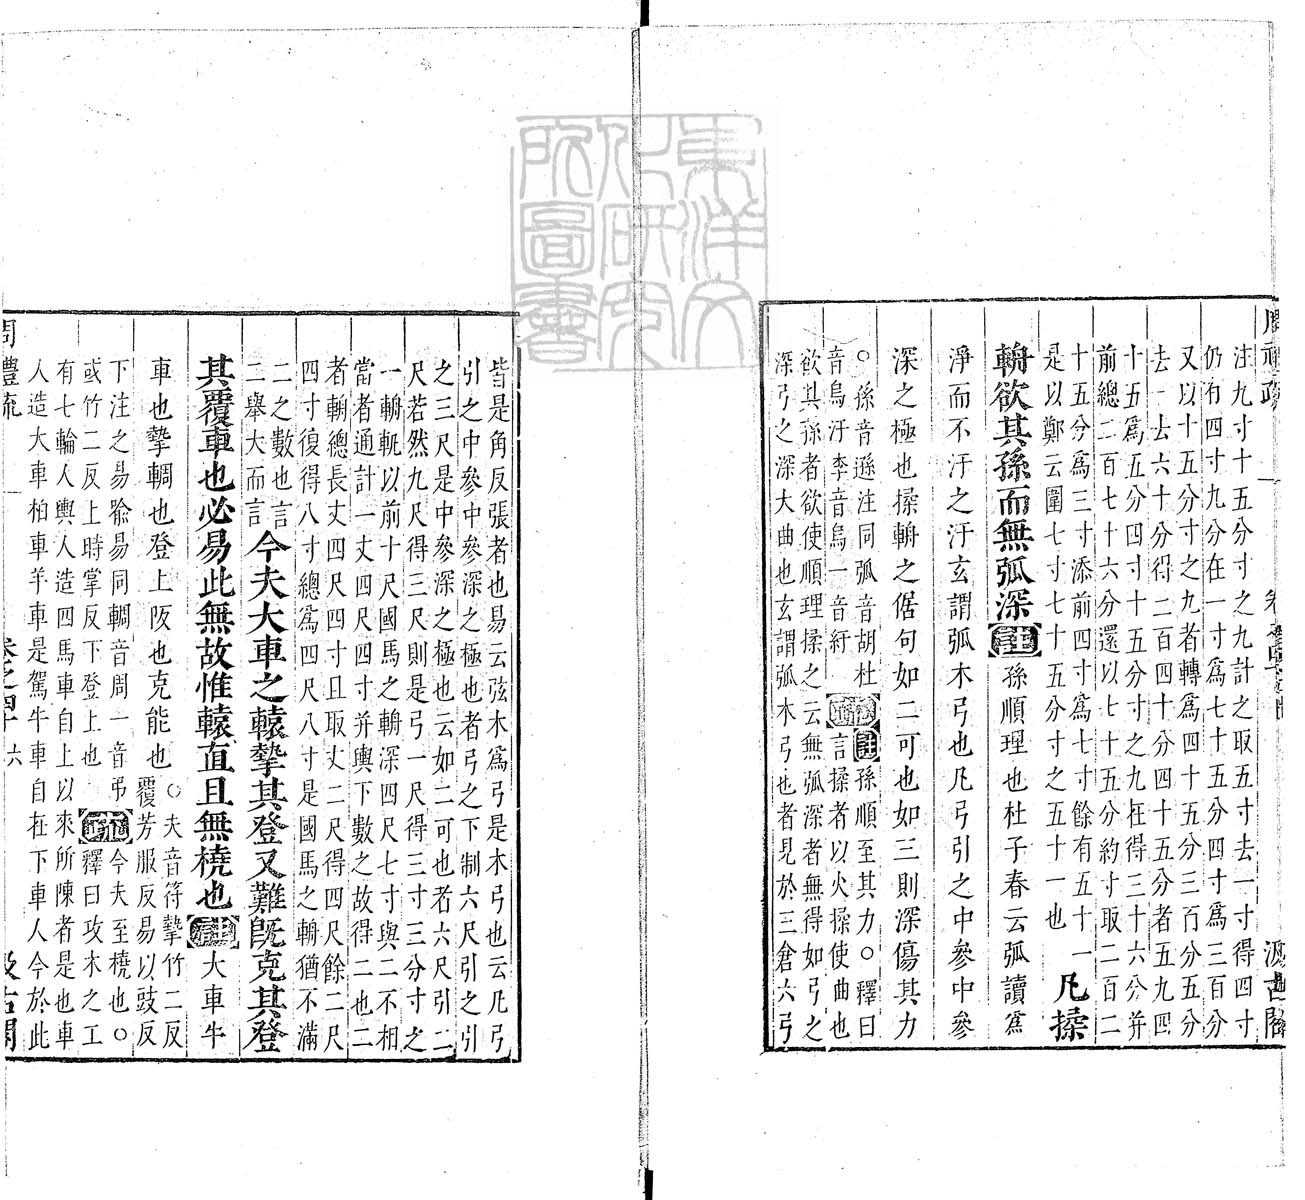 注九寸十五分寸之九計之取五寸去一寸得四寸
仍有四寸九分在一寸爲七十五分四寸爲三百分
又以十五分寸之九者轉爲四十五分三百分五分
去一去六十分得二百四十分四十五分者五九四
十五爲五分四寸十五分寸之九在得三十六分并
前總二百七十六分還以七十五分約寸取二百二
十五分爲三寸添前四寸爲七寸餘有五十一
是以鄭云圍七寸七十五分寸之五十一也
凡揉
輈欲其孫而無弧深
註
孫順理也杜子春云弧讀爲
淨而不汙之汙玄謂弧木弓也凡弓引之中參中參
深之極也揉輈之倨句如二可也如三則深傷其力
○孫音遜注同弧音胡杜
音烏汙李音烏一音紆
疏
註孫順至其力○釋曰
言揉者以火揉使曲也
欲其孫者欲使順理揉之云無弧深者無得如弓之
深弓之深大曲也玄謂弧木弓也者見於三倉六弓
皆是角反張者也易云弦木爲弓是木弓也云凡弓
引之中參中參深之極也者弓之下制六尺引之引
之三尺是中參深之極也云如二可也者六尺引二
尺若然九尺得三尺則是弓一尺得三寸三分寸之
一輈軓以前十尺國馬之輈深四尺七寸與二不相
當者通計一丈四尺四寸并輿下數之故得二也二
者輈總長丈四尺四寸且取丈二尺得四尺餘二尺
四寸復得八寸總爲四尺八寸是國馬之輈猶不滿
二之數也言
二舉大而言
今夫大車之轅摯其登又難旣克其登
其覆車也必易此無故惟轅直且無橈也
註
大車牛
車也摯輖也登上阪也克能也
○夫音符摯竹二反
覆芳服反易以豉反
下注之易易同輖音周一音弔
或竹二反上時掌反下登上也
疏
今夫至橈也○
釋曰攻木之工
有七輪人輿人造四馬車自上以來所陳者是也車
人造大車柏車羊車是駕牛車自在下車人今於此
周禮疏
卷之四十
六
汲古閣